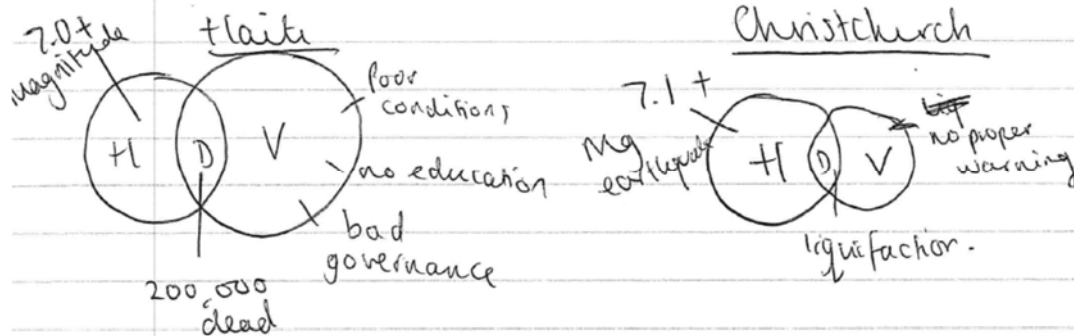 Haiti
7.0+
magnitude
H
D
V
Poor
conditions
no education
bad
governance
200,000
dead
Christchurch
7.1 +
Mg
earthquake
H
D
V
no proper
warning
liquifaction.